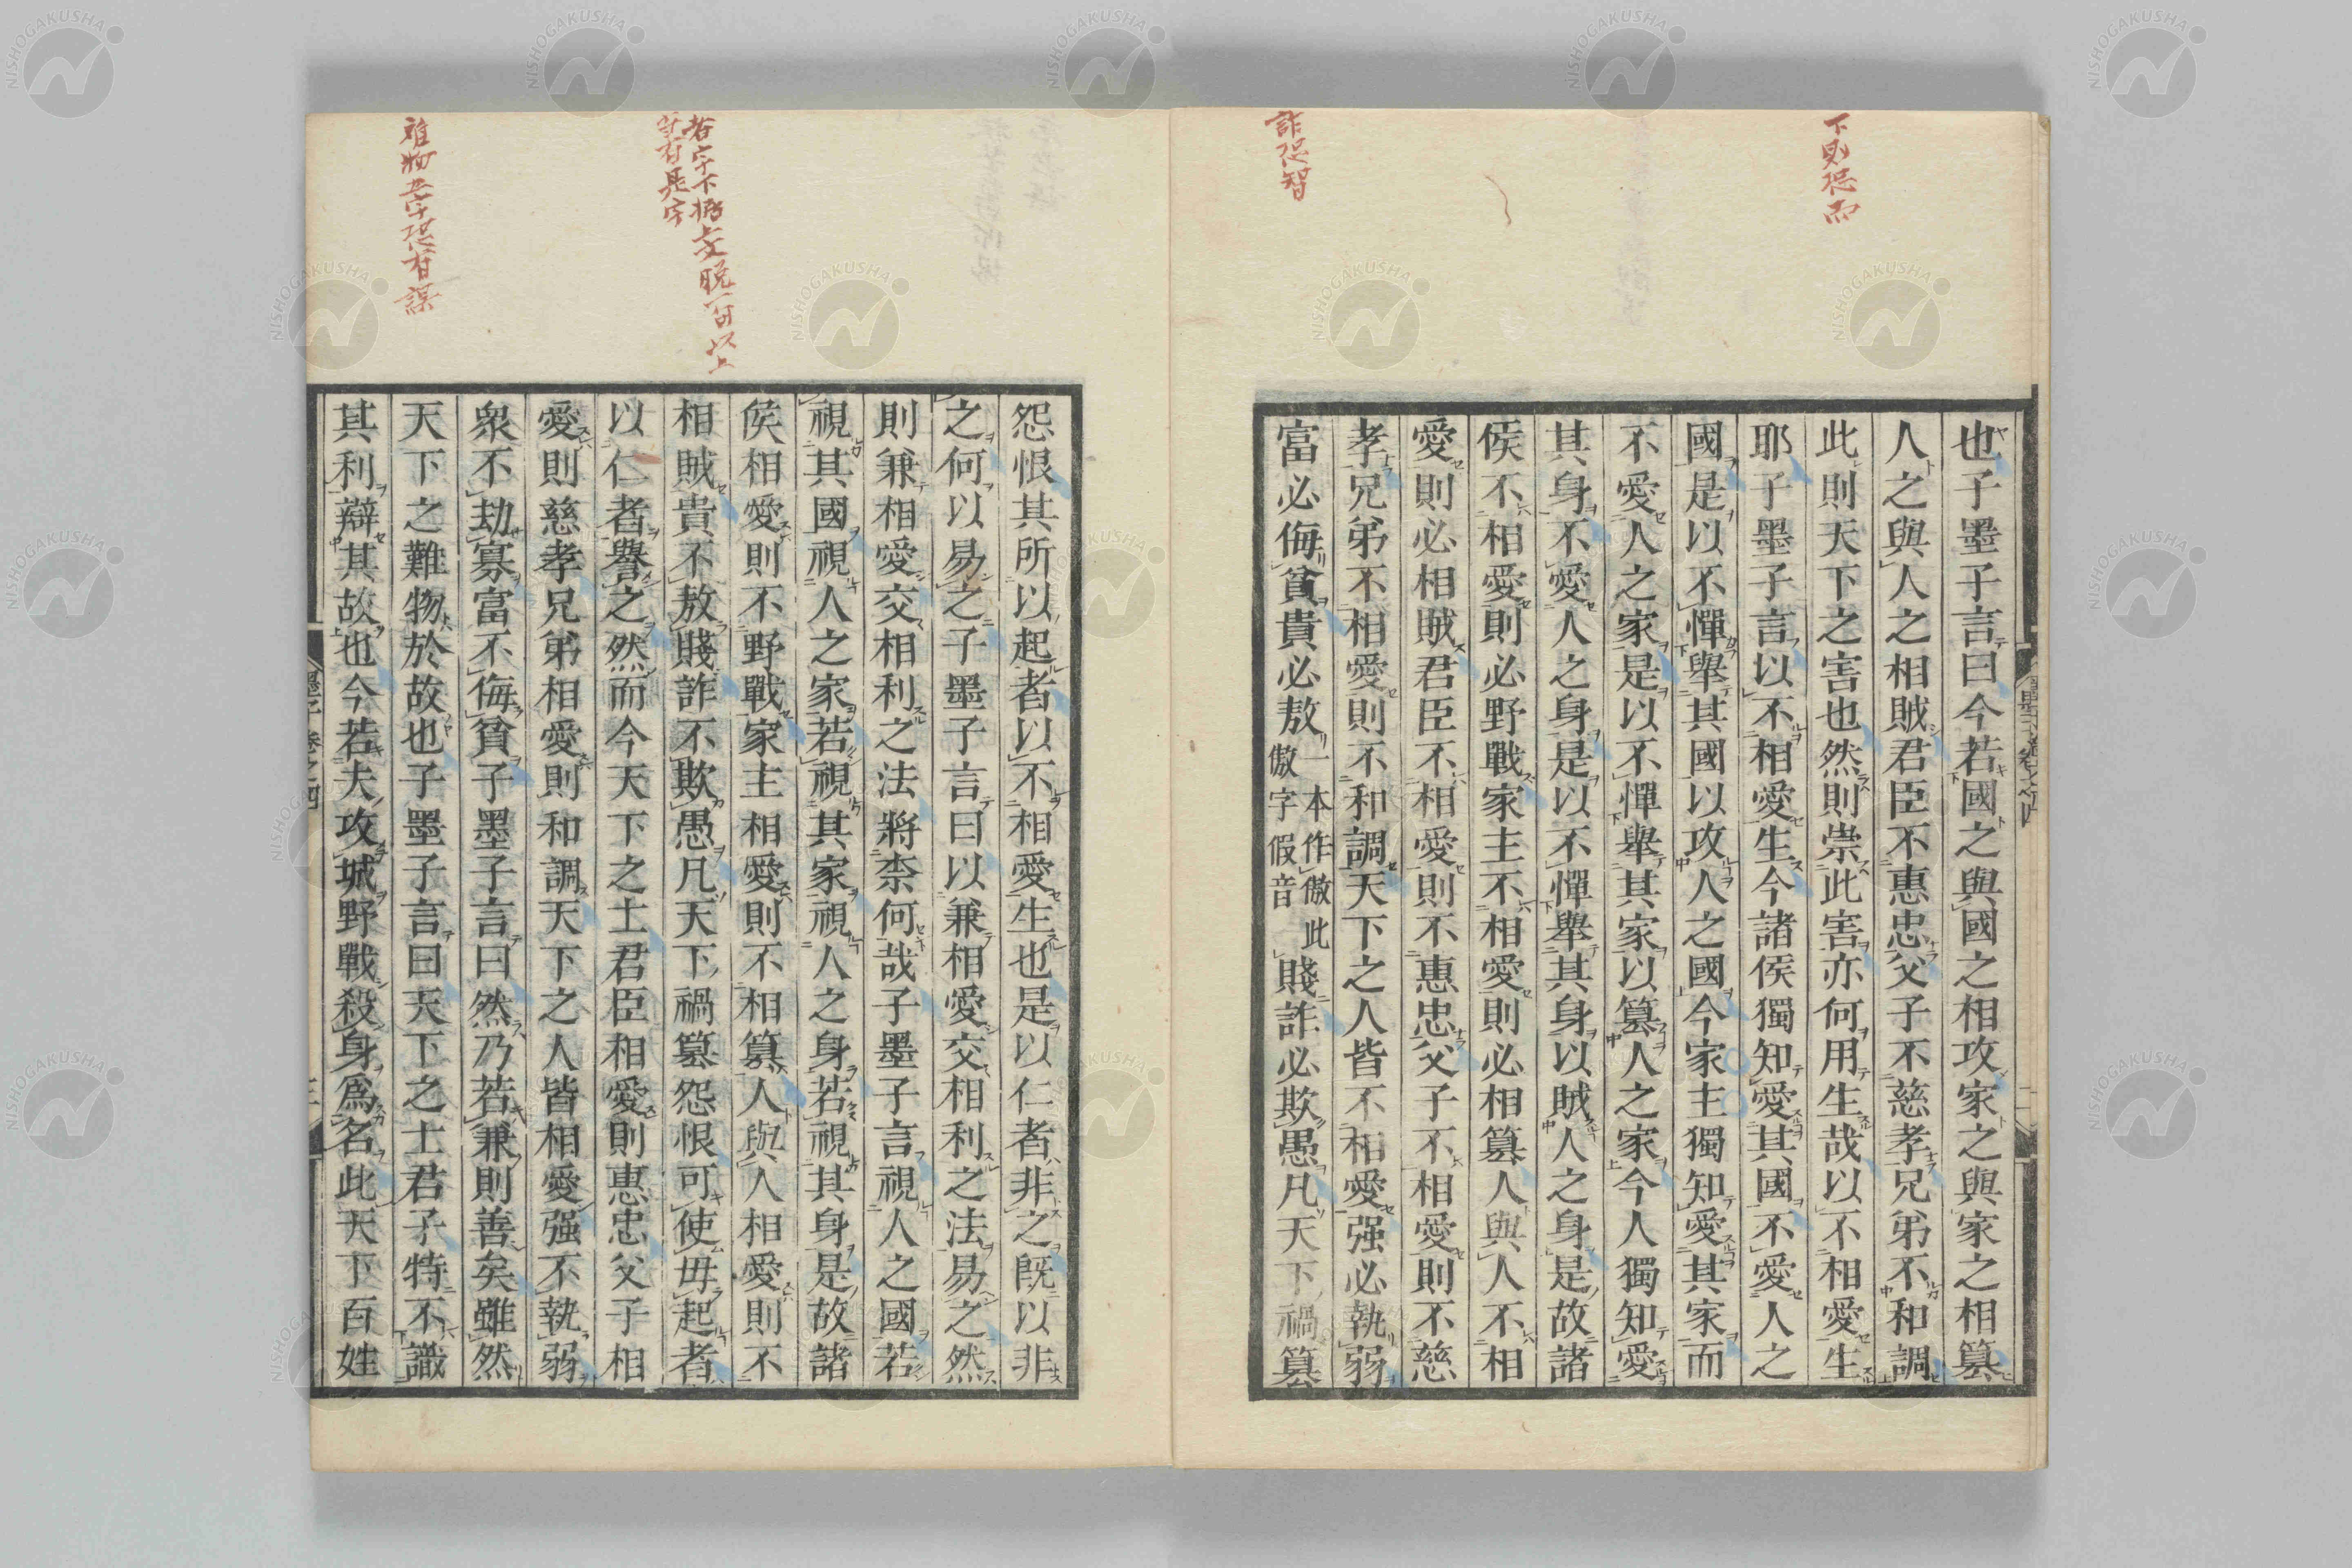 下則恐而
詐恐智
也子墨子言曰今若國之與國之相攻家之與家之相簒
人之與人之相賊君臣不惠忠父子不慈孝兄弟不和調
此則天下之害也然則崇此害亦何用生哉以不相愛生
耶子墨子言以不相愛生今諸侯獨知愛其國不愛人之
國是以不憚舉其國以攻人之國今家主獨知愛其家而
不愛人之家是以不憚舉其家以簒人之家今人獨知愛
其身不愛人之身是以不憚舉其身以賊人之身是故諸
侯不相愛則必野戰家主不相愛則必相簒人與人不相
愛則必相賊君臣不相愛則不惠忠父子不相愛則不慈
孝兄弟不相愛則不和調天下之人皆不相愛强必執弱
富必侮貧貴必敖一本作傲此傲字假音賤詐必欺愚凡天下禍簒
墨子卷之四
若字下據上文脱一句以上
雖物五字恐有誤
怨恨其所以起者以不相愛生也是以仁者非之既以非
之何以易之子墨子言曰以兼相愛交相利之法易之然
則兼相愛交相利之法將柰何哉子墨子言視人之國若
視其國視人之家若視其家視人之身若視其身是故諸
侯相愛則不野戰家主相愛則不相簒人與人相愛則不
相賊貴不敖賤詐不欺愚凡天下禍簒怨恨可使毋起者
以仁者譽之然而今天下之士君臣相愛則惠忠父子相
愛則慈孝兄弟相愛則和調天下之人皆相愛强不執弱
衆不劫寡富不侮貧子墨子言曰然乃若兼則善矣雖然
天下之難物於故也子墨子言曰天下之士君子特不識
其利辯其故也今若夫攻城野戰殺身爲名此天下百姓
墨子卷之四
三
NISHOGAKUSHA